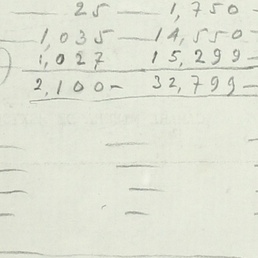 25 — 1,750 —
1,035 — 14,550 —
1,027 15,299 —
2,100 — 32,799 —